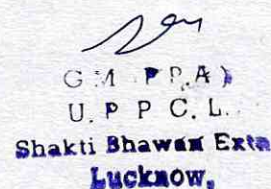 G M P P A)
U. P P C. L.
Shakti Bhawan Extn
Lucknow,